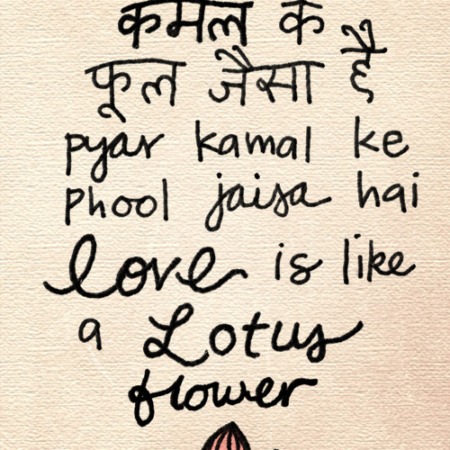 कमल के
फूल जैसा है
pyar kamal ke
phool jaisa hai
love is like
a Lotus
flower